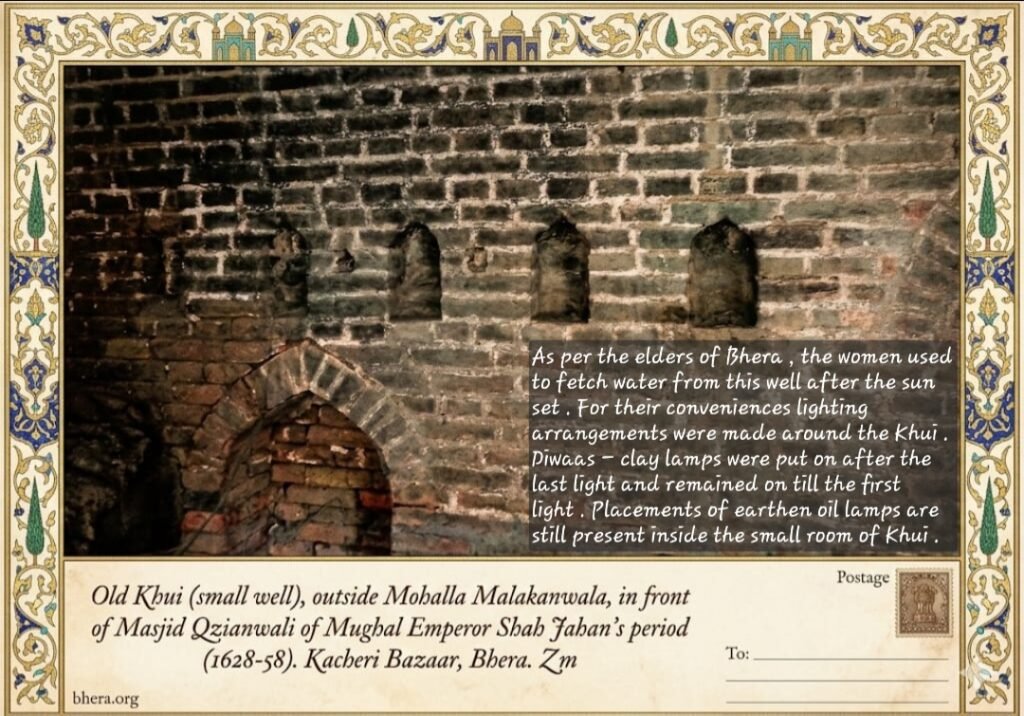 As per the elders of Bhera , the women used
to fetch water from this well after the sun
set . For their conveniences lighting
arrangements were made around the Khui .
Diwaas – clay lamps were put on after the
last light and remained on till the first
light . Placements of earthen oil lamps are
still present inside the small room of Khui .
Old Khui (small well), outside Mohalla Malakanwala, in front
of Masjid Qzianwali of Mughal Emperor Shah Jahan's period
(1628-58). Kacheri Bazaar, Bhera. Zm
bhera.org
Postage
To: